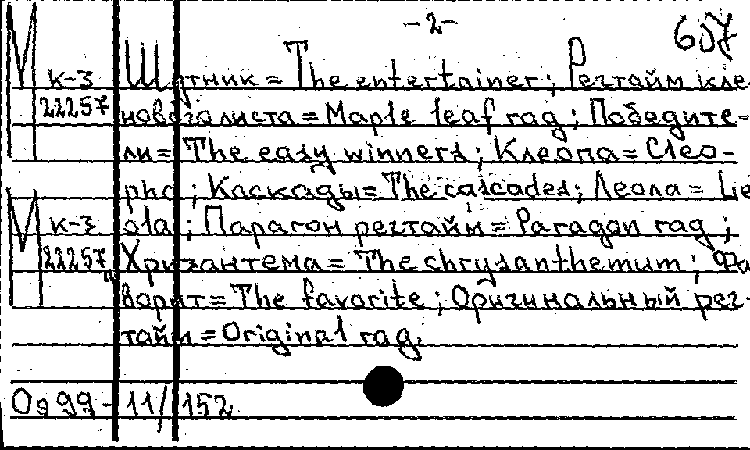 -2-
657
М
к-3
22257
Шутник = The entertainer ; Регтайм кле-
нового листа = Maple leaf rag ; Победите-
ли = The easy winners ; Клеопа = Cleo-
pha ; Каскады = The cascades ; Леола = Le
М
к-3
22257
ola ; Парагон регтайм = Paragon rag ;
Хризантема = The chrysanthemum ; Фа
ворит = The favorite ; Оригинальный рег-
тайм = Original rag.
Оэ 99 - 11/152